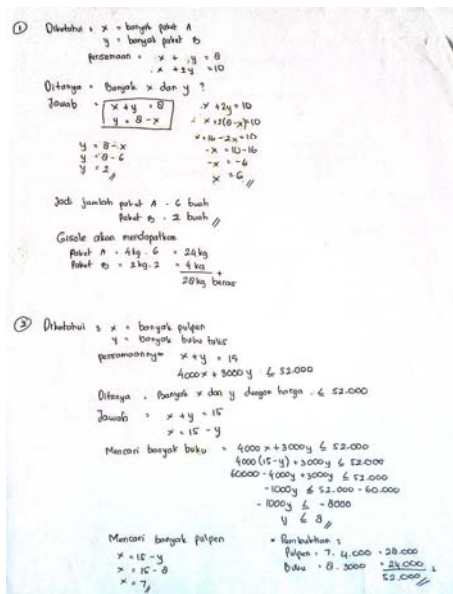 ① Diketahui : x = banyak paket A
y = banyak paket B
persamaan = x + y = 8
x + 2y = 10
Ditanya = Banyak x dan y ?
Jawab = x + y = 8
y = 8 - x
x + 2y = 10
x + 2(8-x) = 10
x + 16 - 2x = 10
-x = 10 - 16
-x = -6
x = 6 //
y = 8 - x
y = 8 - 6
y = 2 //
Jadi jumlah paket A = 6 buah
Paket B = 2 buah //
Gisele akan mendapatkan
Paket A = 4kg . 6 = 24kg
Paket B = 2kg . 2 = 4 kg +
28kg beras
③ Diketahui : x = banyak pulpen
y = banyak buku tulis
persamaannya = x + y = 15
4000x + 3000y ≤ 52.000
Ditanya = Banyak x dan y dengan harga ≤ 52.000
Jawab = x + y = 15
x = 15 - y
Mencari banyak buku = 4000x + 3000y ≤ 52.000
4000 (15-y) + 3000y ≤ 52.000
60000 - 4000y + 3000y ≤ 52.000
-1000y ≤ 52.000 - 60.000
-1000y ≤ -8000
y ≤ 8 //
Mencari banyak pulpen
x = 15 - y
x = 15 - 8
x = 7 //
• Pembuktian :
Pulpen = 7. 4.000 = 28.000
Buku = 8. 3000 = 24.000 +
52.000 //